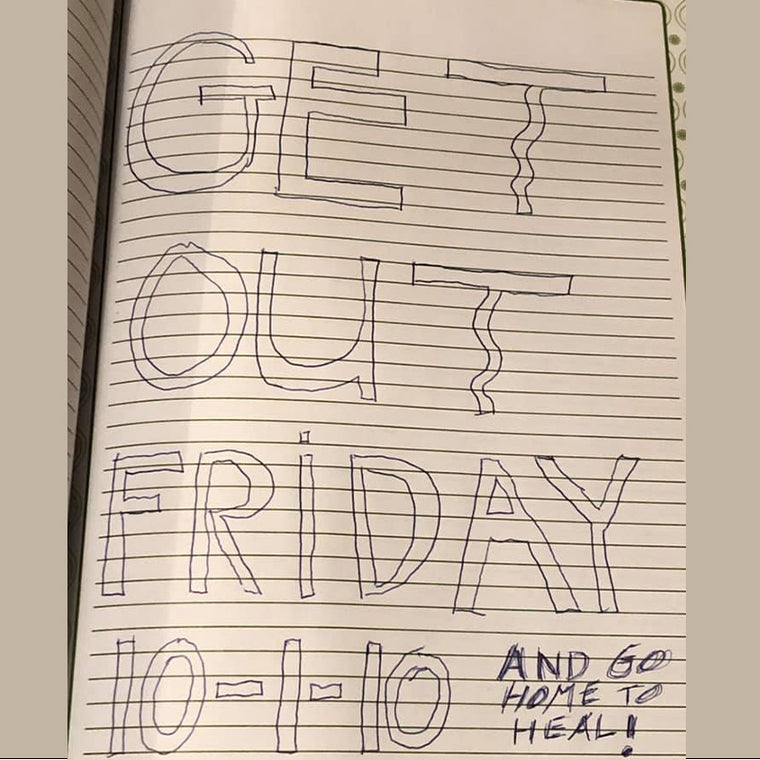 GET
OUT
FRiDAY
10-1-10
AND GO
HOME TO
HEAL!